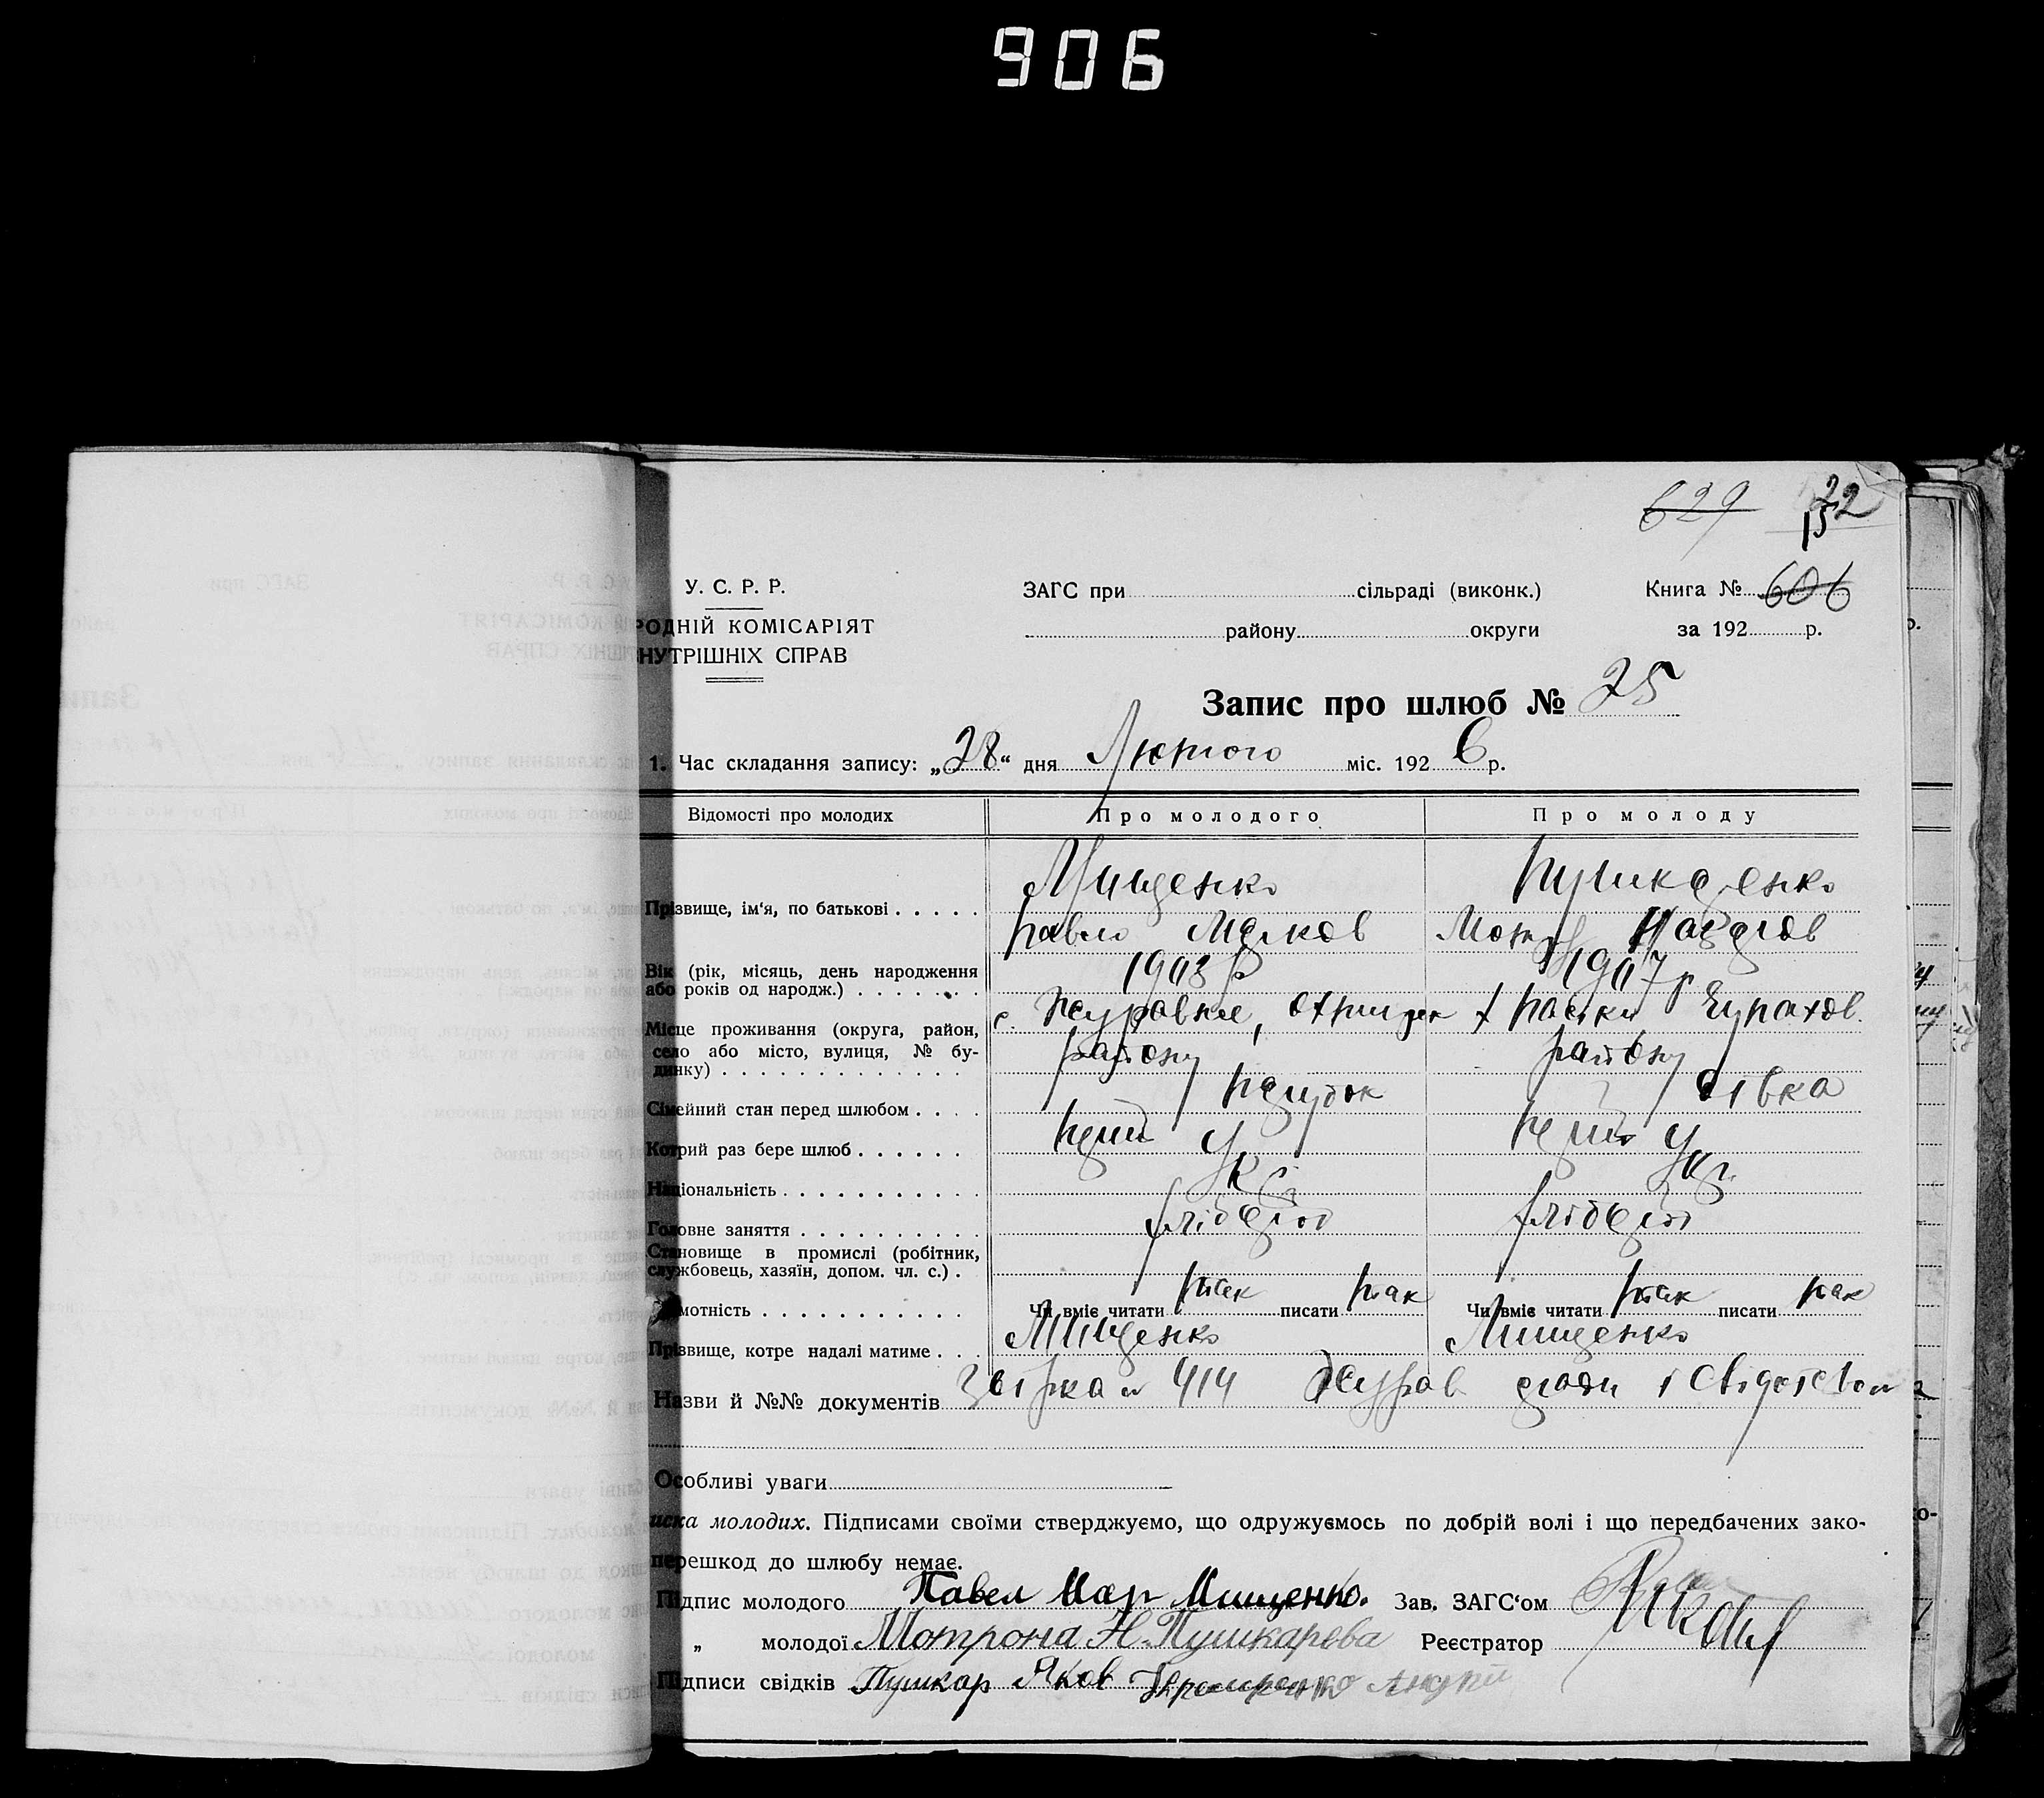 906
629 22
15
У. С. Р. Р. ЗАГС при сільраді (виконк.) Книга № 606
РОДНІЙ КОМІСАРІЯТ району округи за 192 р.
НУТРІШНІХ СПРАВ
Запис про шлюб № 25
1. Час складання запису: „28“ дня Лютого міс. 192 6 р.
Відомості про молодих Про молодого Про молоду
Мищенко Пушкаренко
Прізвище, ім‘я, по батькові
Павло Марков Мотр
Вік (рік, місяць, день народження 1903 р 1907 р
або років од народж.)
Місце проживання (округа, район, с. Журавне, х
село або місто, вулиця, № бу- району району
динку)
Сімейний стан перед шлюбом парубок дівка
Котрий раз бере шлюб перш перш
Національність Укр Укр
Головне заняття хлібороб хлібороб
Становище в промислі (робітник,
службовець, хазяїн, допом. чл. с.)
мотність Чи вміє читати так писати так Чи вміє читати так писати так
Прізвище, котре надалі матиме Мищенко Мищенко
Назви й №№ документів 414 Журав
Особливі уваги
иска молодих. Підписами своїми стверджуємо, що одружуємось по добрій волі і що передбачених зако-
перешкод до шлюбу немає.
Підпис молодого Павел Мар Мищенко. Зав. ЗАГС‘ом
„ молодої Мотрона Н. Пушкарева Реєстратор
Підписи свідків Пушкар Яков Андрій